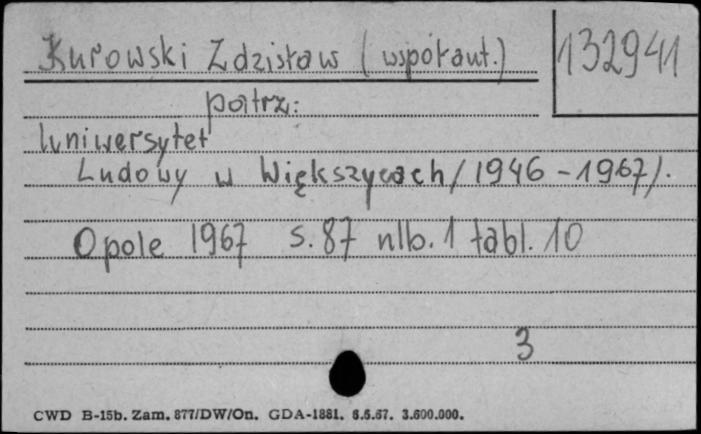 Kurowski Zdzisław (współaut.)
132941
patrz:
Uniwersytet
Ludowy w Większycach /1946 - 1967/.
Opole 1967 s. 87 nlb. 1 tabl. 10
3
CWD B-15b. Zam. 877/DW/On. GDA-1881. 6.5.67. 3.600.000.